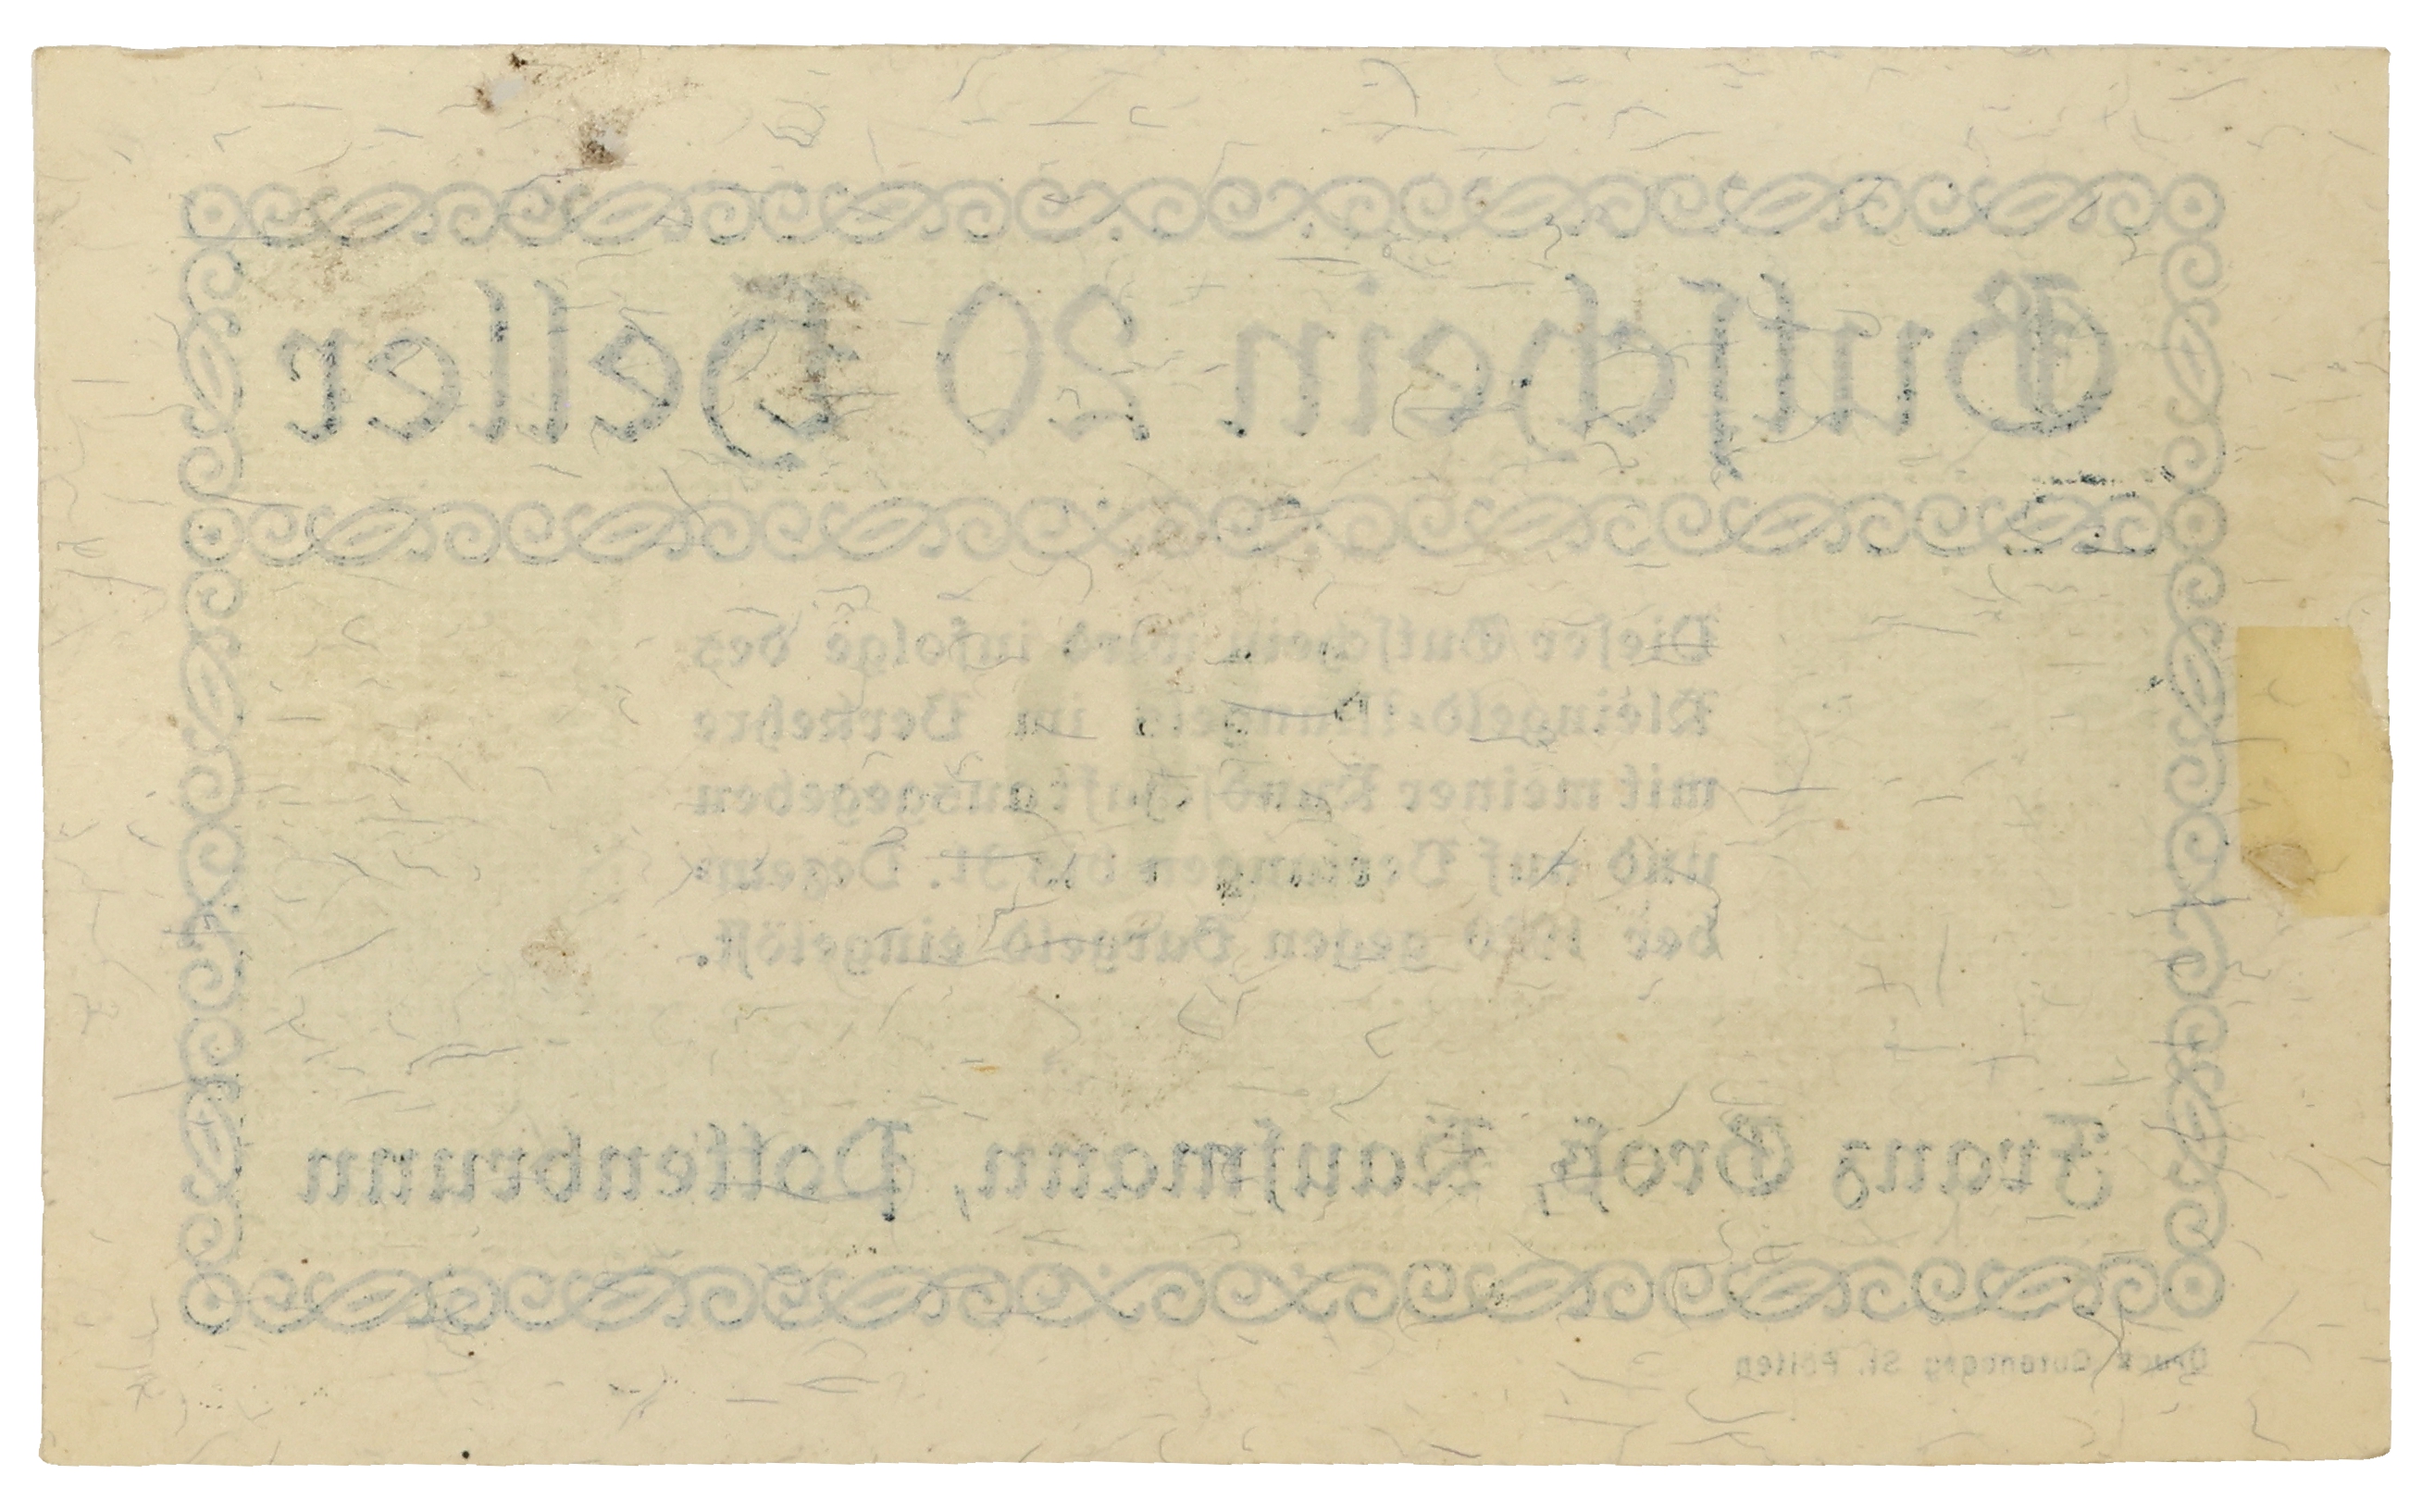 Gutschein 20 Heller
Dieser Gutschein wird infolge des
Kleingeld-Mangels im Verkehre
mit meiner Kundschaft ausgegeben
und auf Verlangen bis 31. Dezem-
ber 1920 gegen Bargeld eingelöst.
Franz Groß, Kaufmann, Pottenbrunn
Druck Gutenberg St. Pölten